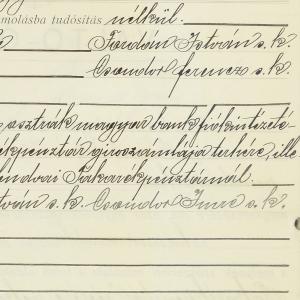 molásba tudósítás nélkül.
Fordán István s. k.
Csondor ferencz s. k.
osztrák magyar bank fiókintézeté-
ékpénztár giroszámlája terhére, ille-
lendvai Takarékpénztárnál.
tván s. k. Csondor Imre s. k.